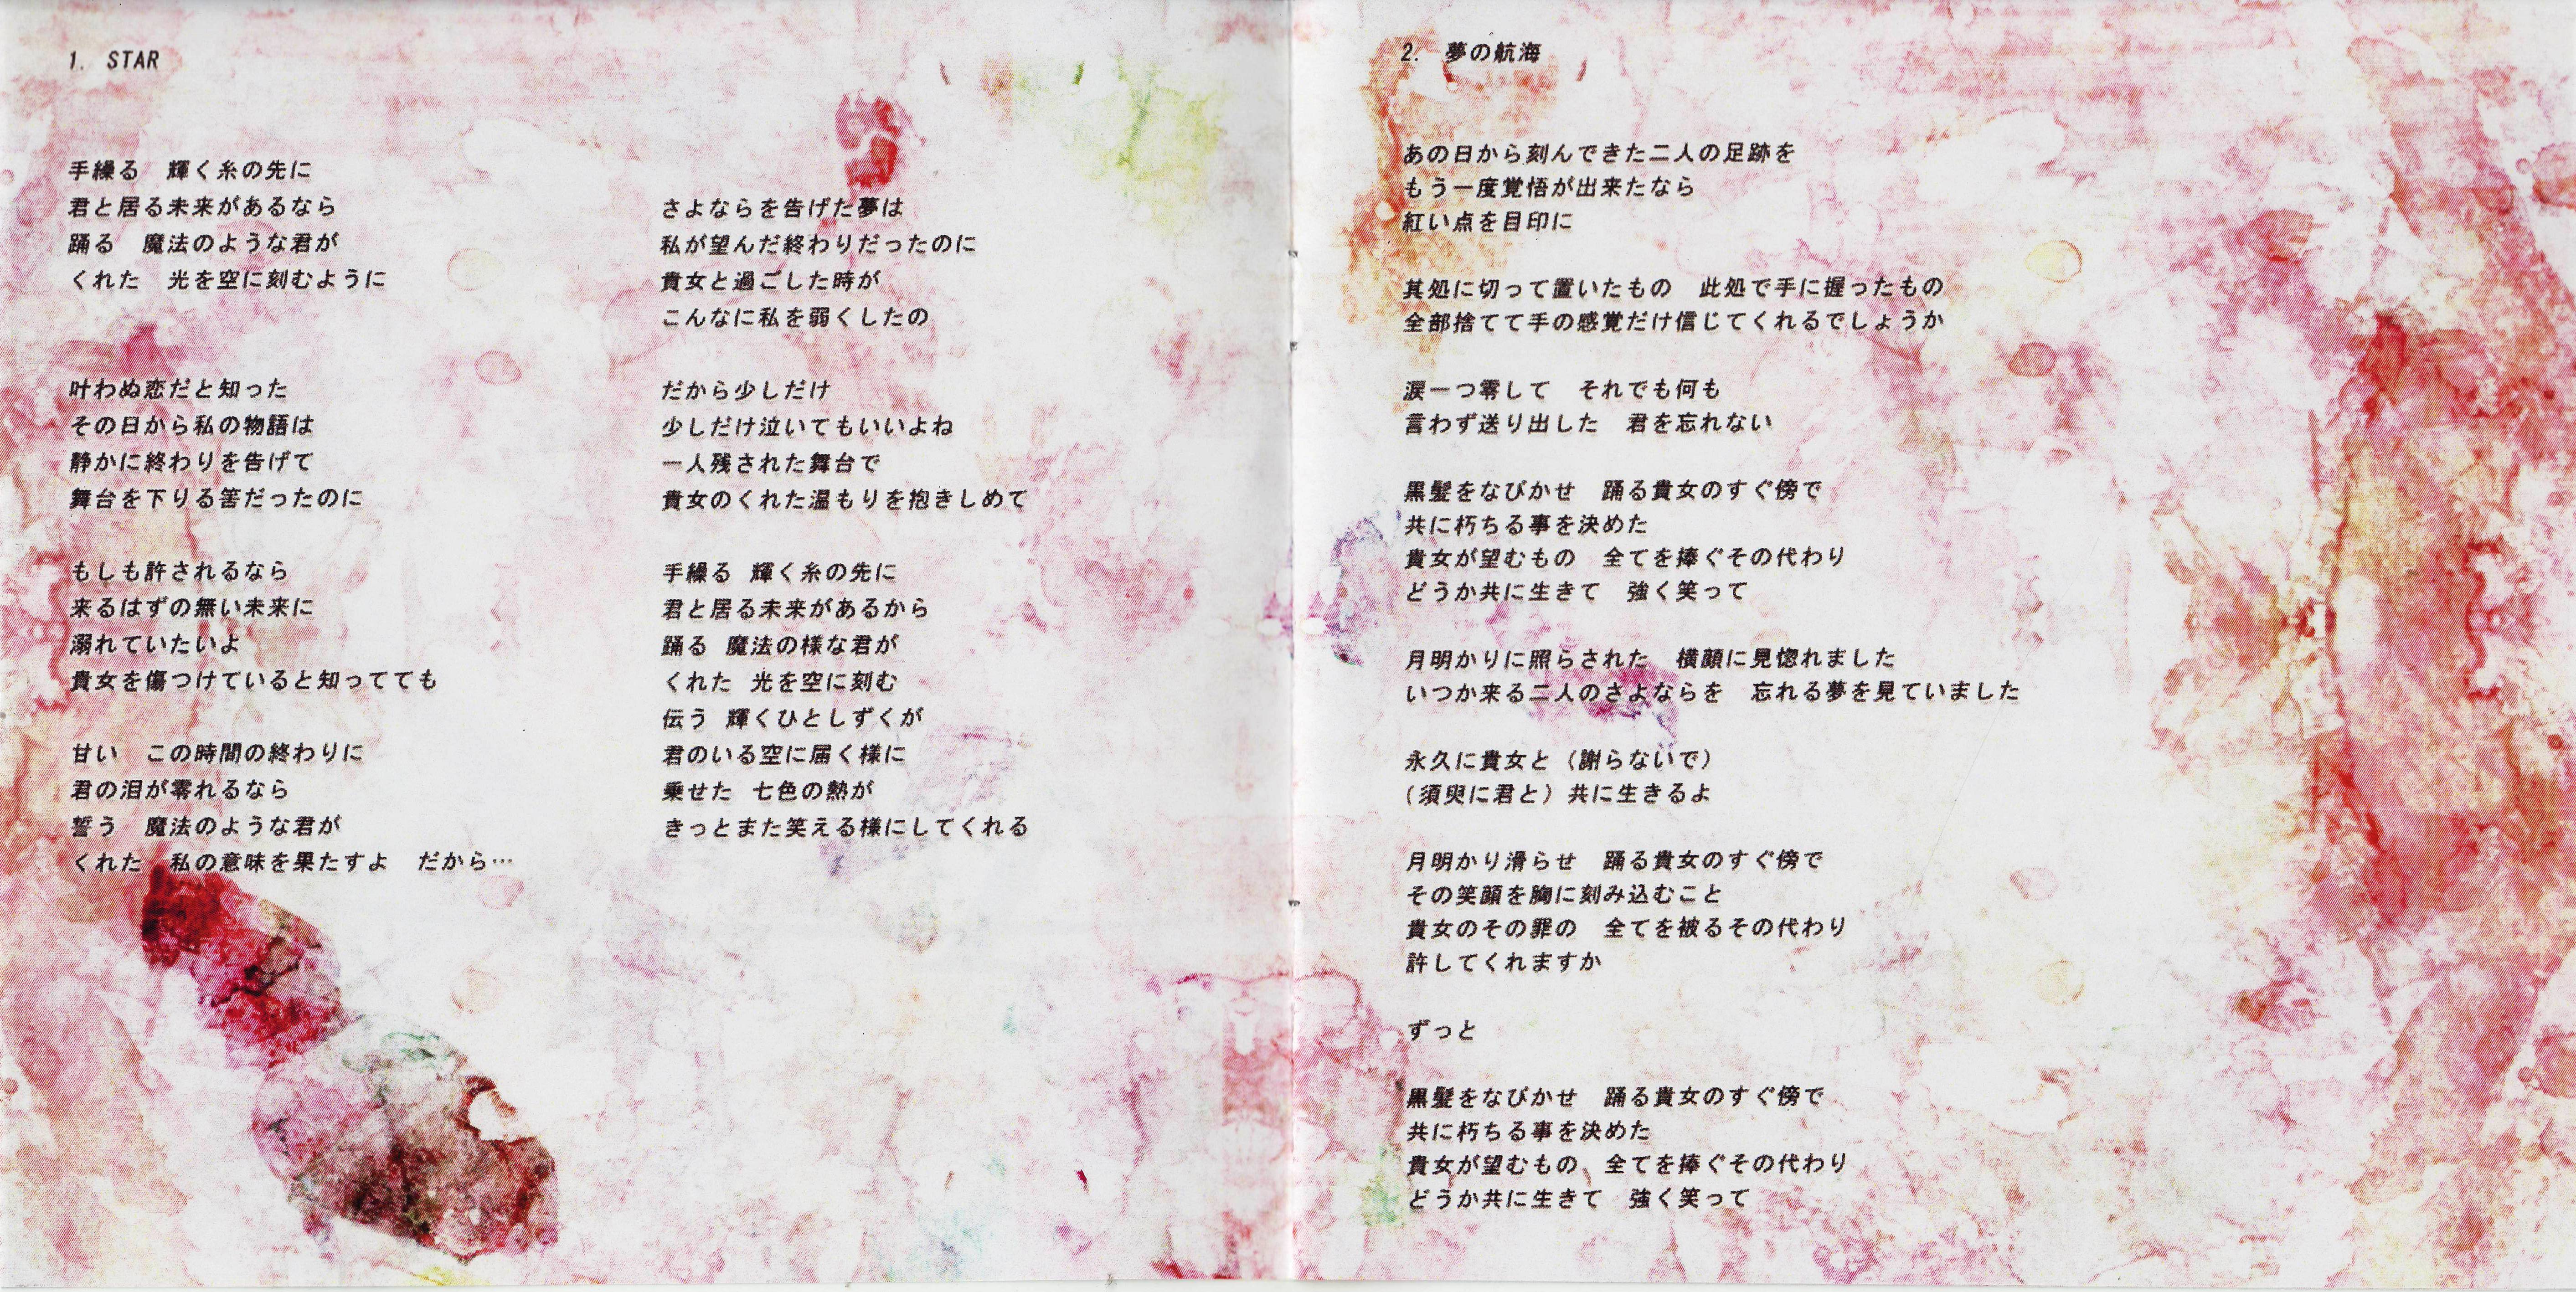 1. STAR
手繰る　輝く糸の先に
君と居る未来があるなら
踊る　魔法のような君が
くれた　光を空に刻むように
叶わぬ恋だと知った
その日から私の物語は
静かに終わりを告げて
舞台を下りる筈だったのに
もしも許されるなら
来るはずの無い未来に
溺れていたいよ
貴女を傷つけていると知ってても
甘い　この時間の終わりに
君の泪が零れるなら
誓う　魔法のような君が
くれた　私の意味を果たすよ　だから…
さよならを告げた夢は
私が望んだ終わりだったのに
貴女と過ごした時が
こんなに私を弱くしたの
だから少しだけ
少しだけ泣いてもいいよね
一人残された舞台で
貴女のくれた温もりを抱きしめて
手繰る 輝く糸の先に
君と居る未来があるから
踊る 魔法の様な君が
くれた 光を空に刻む
伝う 輝くひとしずくが
君のいる空に届く様に
乗せた 七色の熱が
きっとまた笑える様にしてくれる
2. 夢の航海
あの日から刻んできた二人の足跡を
もう一度覚悟が出来たなら
紅い点を目印に
其処に切って置いたもの　此処で手に握ったもの
全部捨てて手の感覚だけ信じてくれるでしょうか
涙一つ零して　それでも何も
言わず送り出した　君を忘れない
黒髪をなびかせ　踊る貴女のすぐ傍で
共に朽ちる事を決めた
貴女が望むもの　全てを捧ぐその代わり
どうか共に生きて　強く笑って
月明かりに照らされた　横顔に見惚れました
いつか来る二人のさよならを　忘れる夢を見ていました
永久に貴女と（謝らないで）
（須臾に君と）共に生きるよ
月明かり滑らせ　踊る貴女のすぐ傍で
その笑顔を胸に刻み込むこと
貴女のその罪の　全てを被るその代わり
許してくれますか
ずっと
黒髪をなびかせ　踊る貴女のすぐ傍で
共に朽ちる事を決めた
貴女が望むもの、全てを捧ぐその代わり
どうか共に生きて　強く笑って